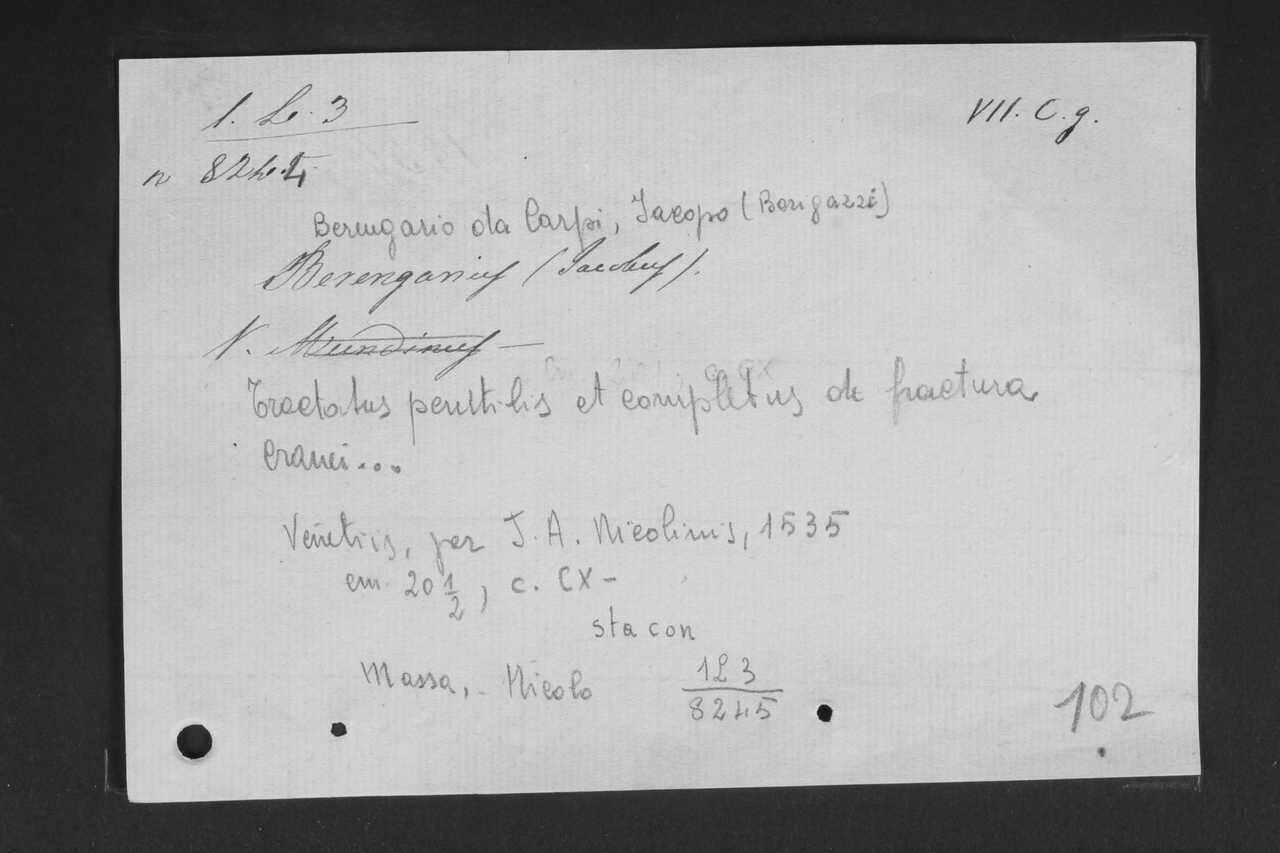 1. L. 3
VII. C. g.
n 8244
Berengario da Carpi, Jacopo (Barigazzi)
Berengarius (Jacobus).
V. Mundinus —
Tractatus perutilis et completus de fractura
cranei...
Venetiis, per J. A. Nicolinis, 1535
cm 20 1/2, c. CX -
sta con
Massa, Nicolo
1L 3
8245
102